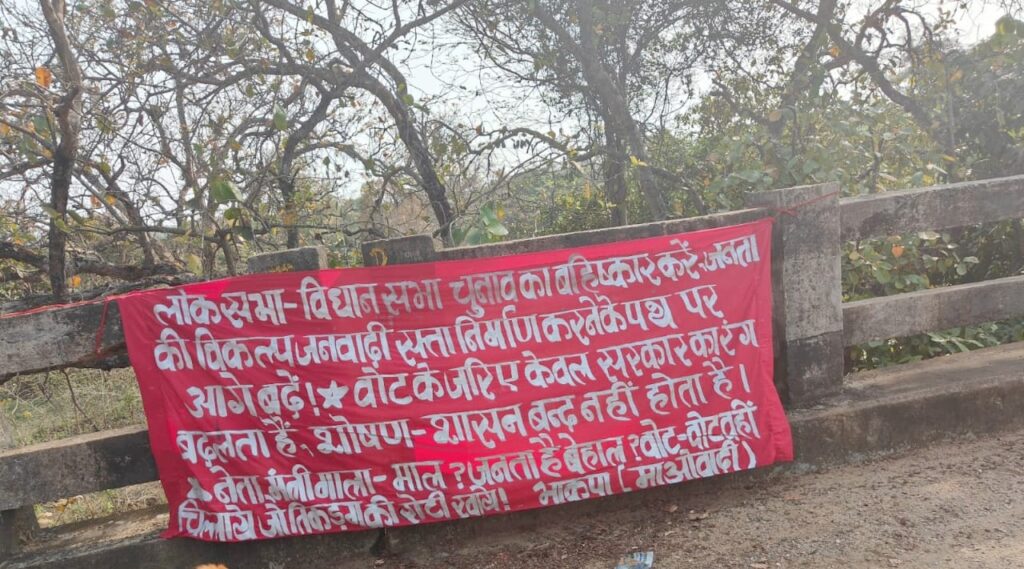 लोकसभा-विधान सभा चुनाव का बहिष्कार करें-जनता
की विकल्प जनवादी सत्ता निर्माण करने के पथ पर
आगे बढ़ें! ★ वोट के जरिए केवल सरकार का रंग
बदलता है, शोषण-शासन बन्द नहीं होता है।
★ नेता, मंत्री माला-माल? जनता है बेहाल? वोट-वोट वही
चिल्लाये जो तिकड़म की रोटी खाये! भाकपा (माओवादी)